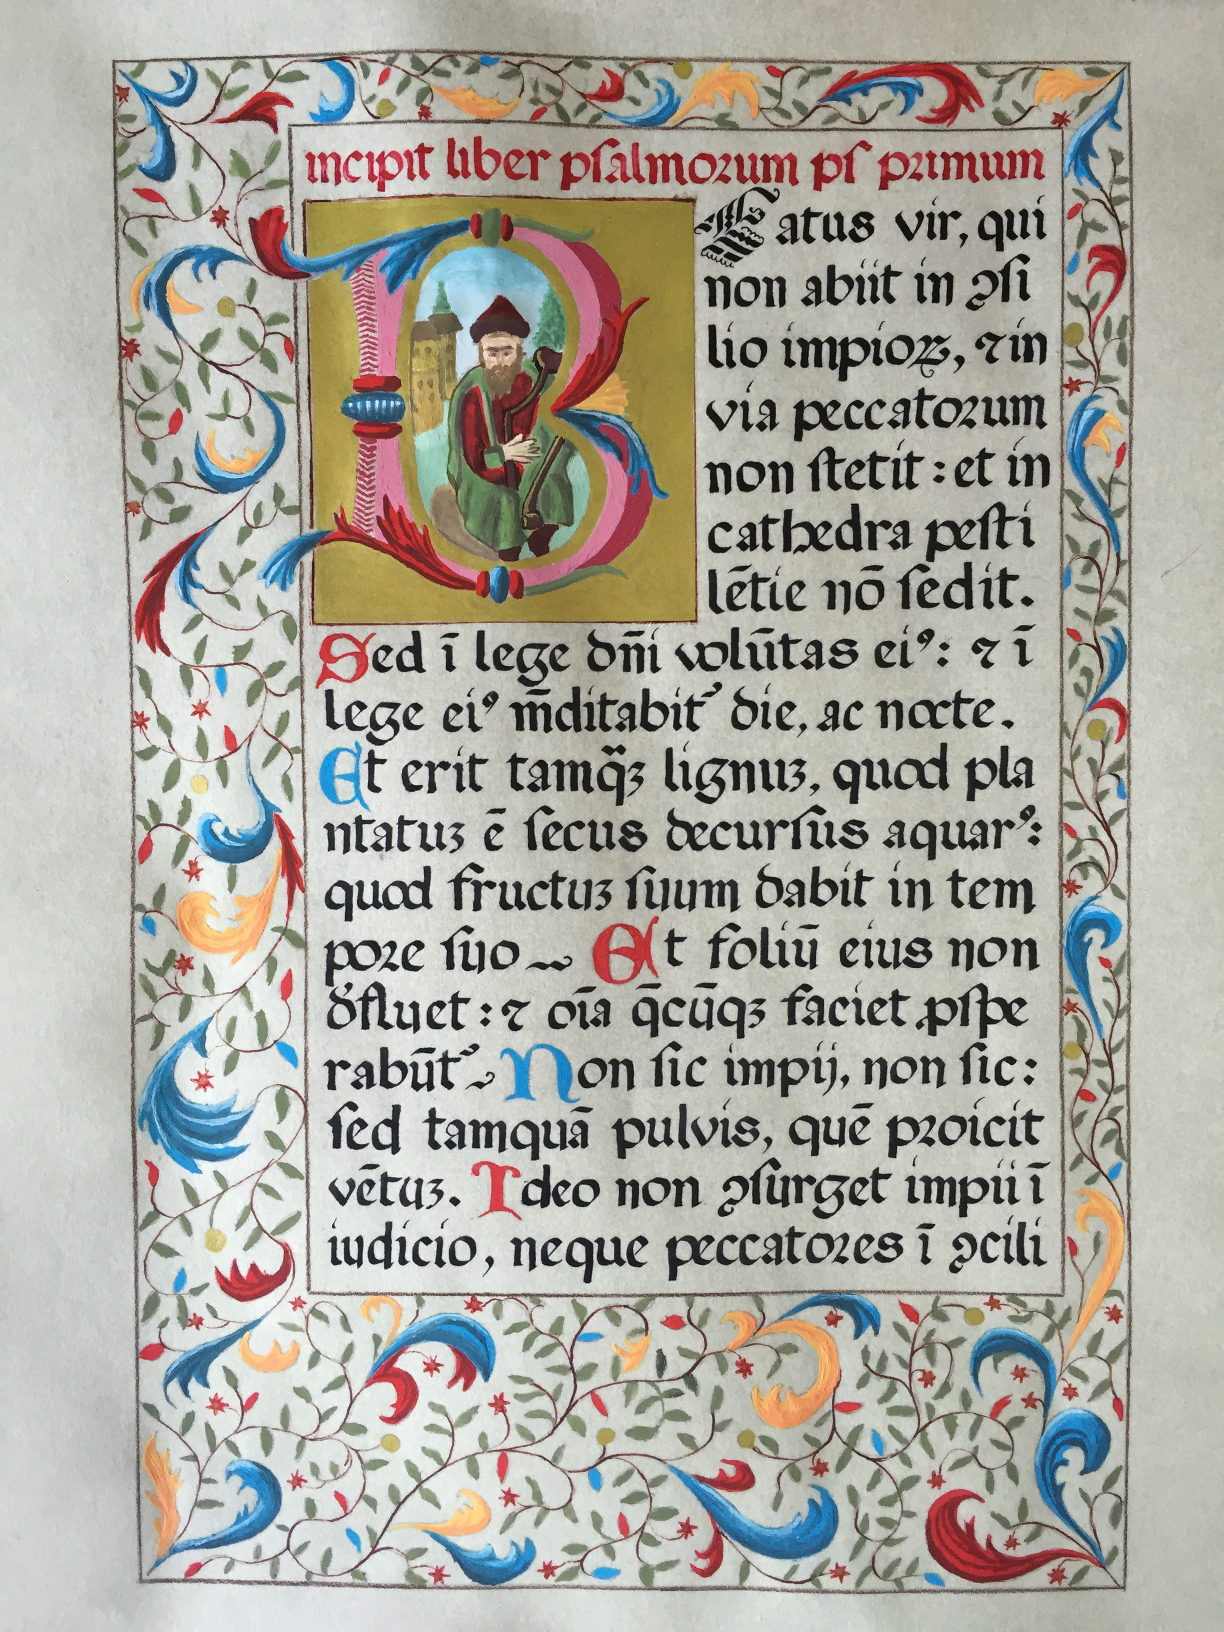 incipit liber pſalmoꝛum pſ pꝛimum
B Eatus vir, qui
non abiit in ꝯſi
lio impioꝝ, ⁊ in
via peccatoꝛum
non ſtetit : et in
cathedra peſti
lētie nō ſedit.
Sed ī lege dn̄i volūtas eiꝰ: ⁊ ī
lege eiꝰ m̄ditabit᷑ die, ac nocte.
Et erit tamqᷓꝫ lignuꝫ, quod pla
ntatuꝫ ē ſecus decurſus aquarꝰ:
quod fructuꝫ ſuum dabit in tem
poꝛe ſuo ~ Et foliū eius non
d̾fluet : ⁊ oīa q̄cūqꝫ faciet ꝓſpe
rabūt᷑ ~ Non ſic impij, non ſic:
ſed tamquā pulvis, quē pꝛoicit
vētuꝫ. Ideo non ꝯſurget impii ī
iudicio, neque peccatoꝛes ī ꝯcili